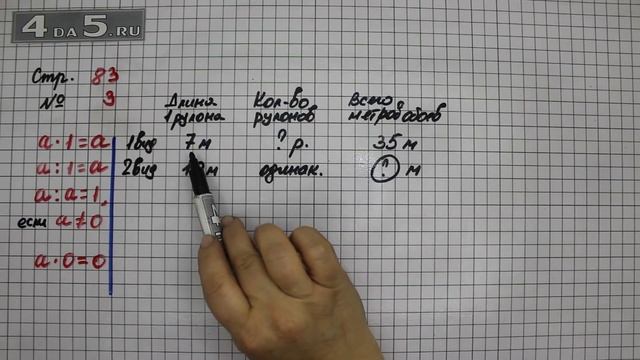 4DA5.RU
Стр. 83
№ 3
Длина 1 рулона
Кол-во рулонов
Всего метров обоев
1 вид 7 м ? р. 35 м
2 вид м одинак. ? м
a · 1 = a
a : 1 = a
a : a = 1,
если a ≠ 0
a · 0 = 0